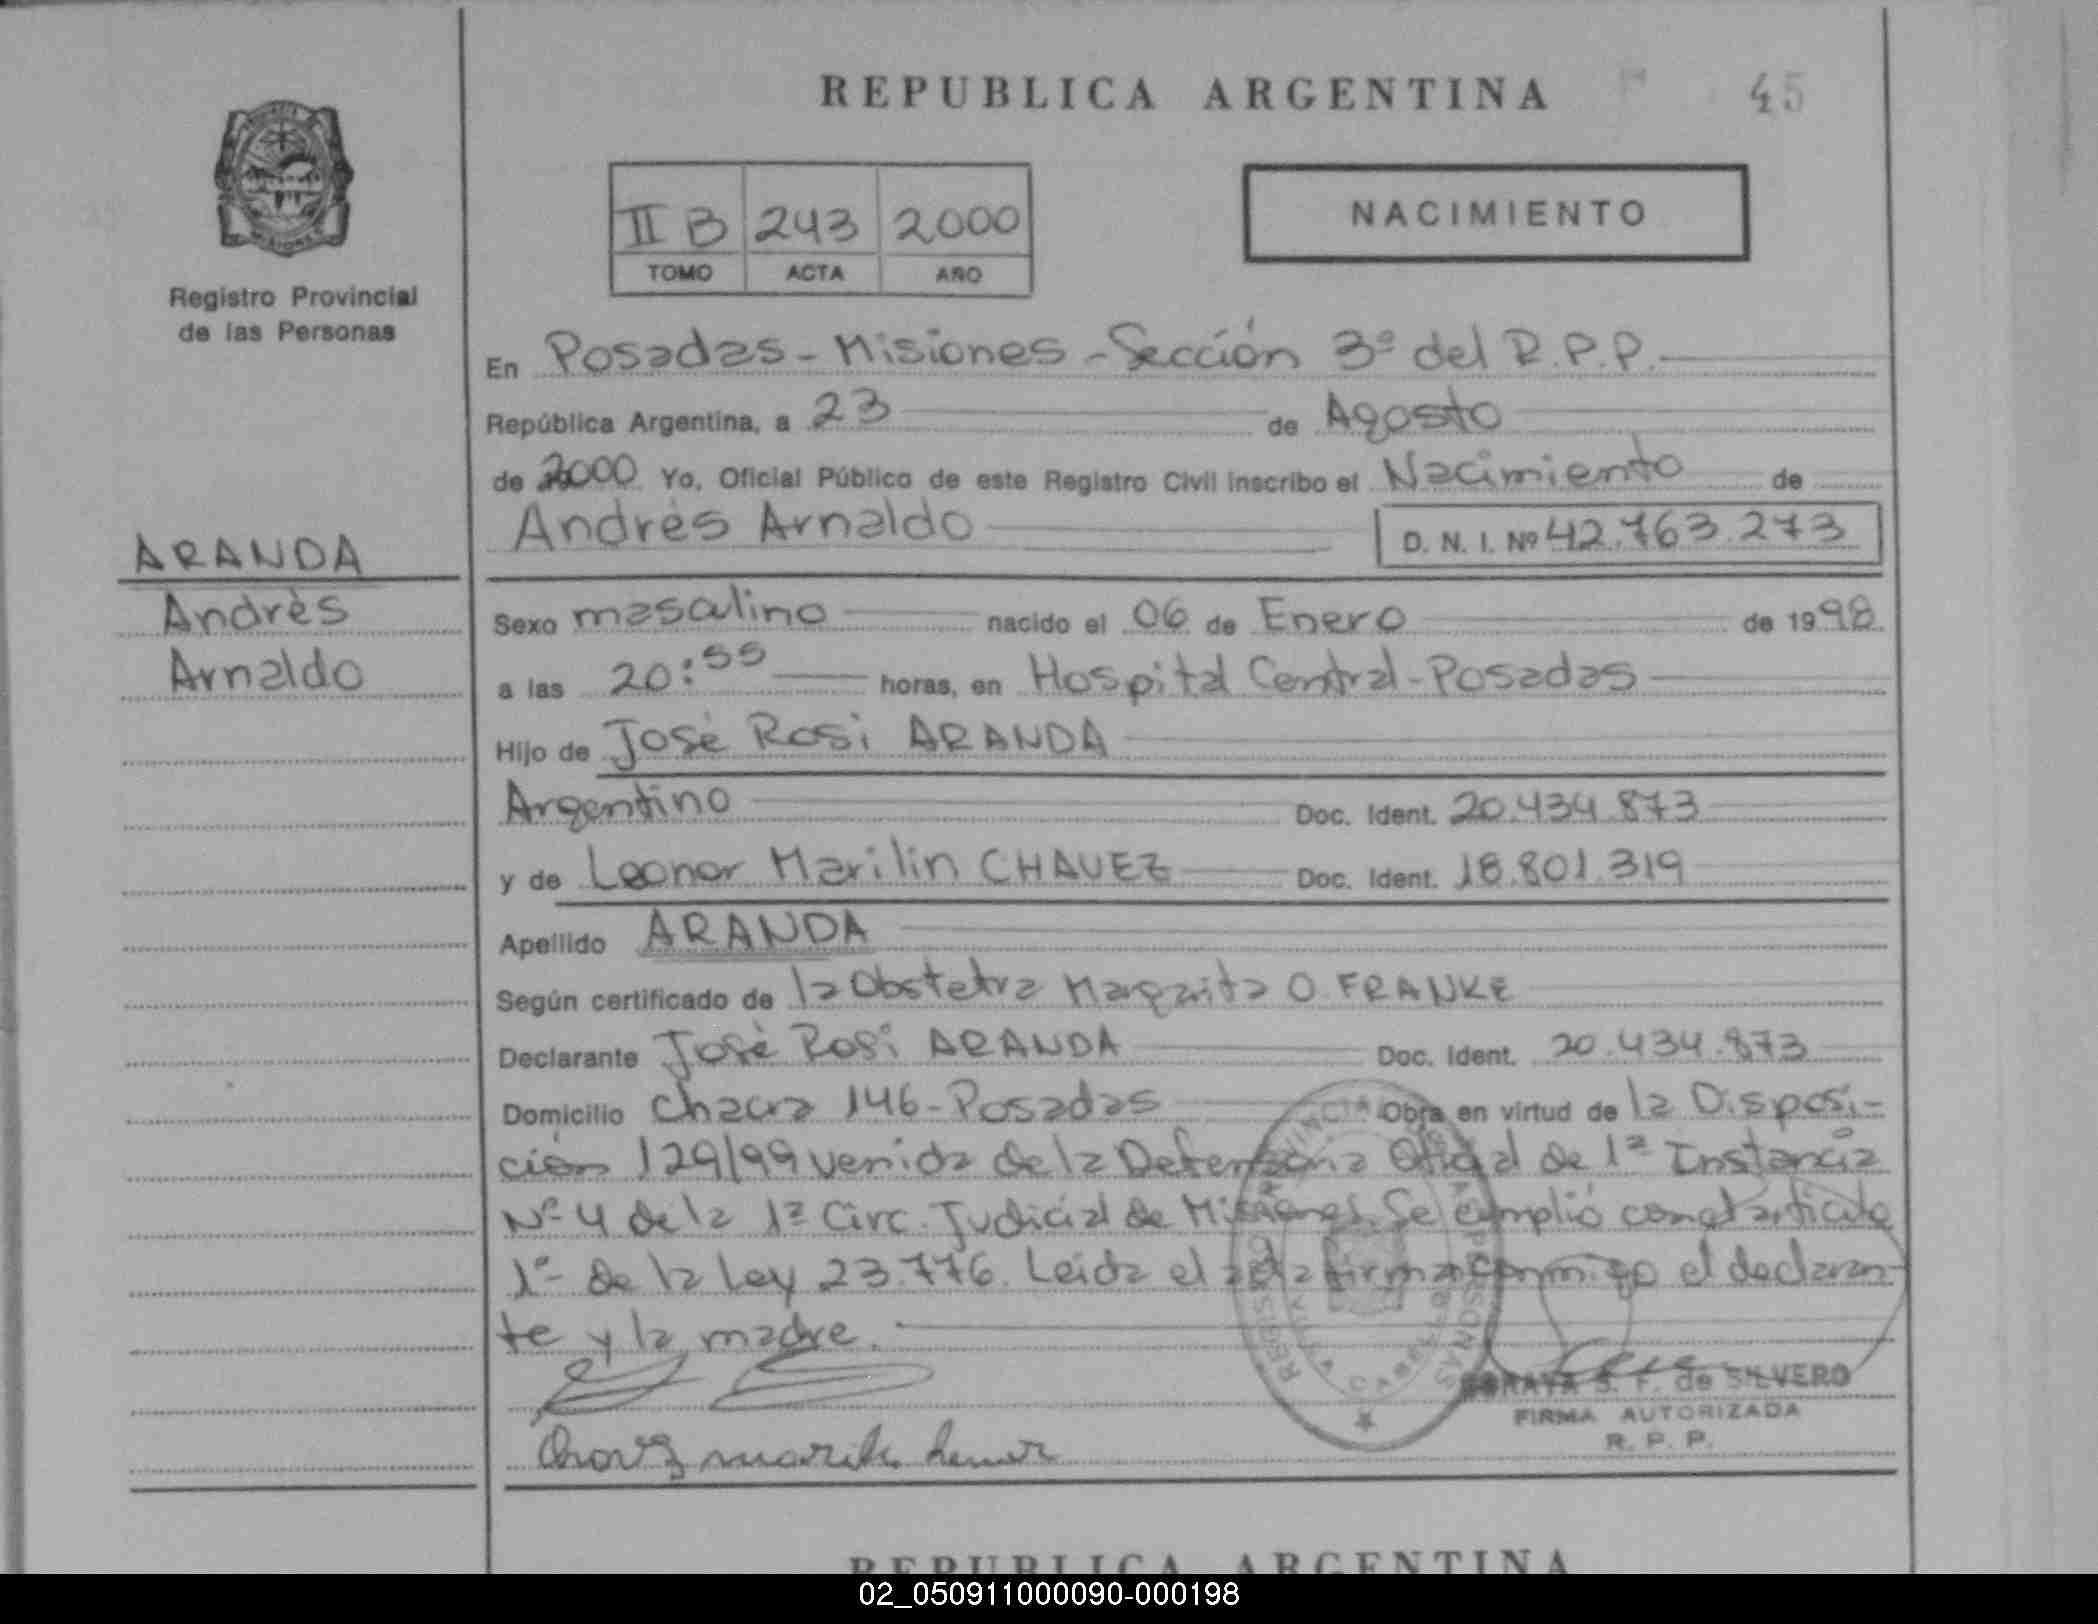 REPUBLICA ARGENTINA
45
II B 243 2000
TOMO ACTA AÑO
NACIMIENTO
Registro Provincial
de las Personas
ARANDA
Andrés
Arnaldo
En Posadas - Misiones - Sección 3º del R.P.P.
República Argentina, a 23 de Agosto
de 2000 Yo, Oficial Público de este Registro Civil inscribo el Nacimiento de
Andrés Arnaldo D. N. I. Nº 42.763.273
Sexo masculino nacido el 06 de Enero de 1998
a las 20:55 horas, en Hospital Central - Posadas
Hijo de José Rosi ARANDA
Argentino Doc. Ident. 20.434.873
y de Leonor Marilin CHAVEZ Doc. Ident. 18.801.319
Apellido ARANDA
Según certificado de la Obstetra Margarita O. FRANKE
Declarante José Rosi ARANDA Doc. Ident. 20.434.873
Domicilio Chacra 146 - Posadas Obra en virtud de la Disposi-
ción 129/99 venida de la Defensoria Oficial de 1ª Instancia
Nº 4 de la 1ª Circ. Judicial de Misiones. Se cumplió con el artículo
1º de la Ley 23.776. Leída el acta firma conmigo el declaran-
te y la madre.
SORAYA S. F. de SILVERO
FIRMA AUTORIZADA
R. P. P.
REPUBLICA ARGENTINA
02_050911000090-000198